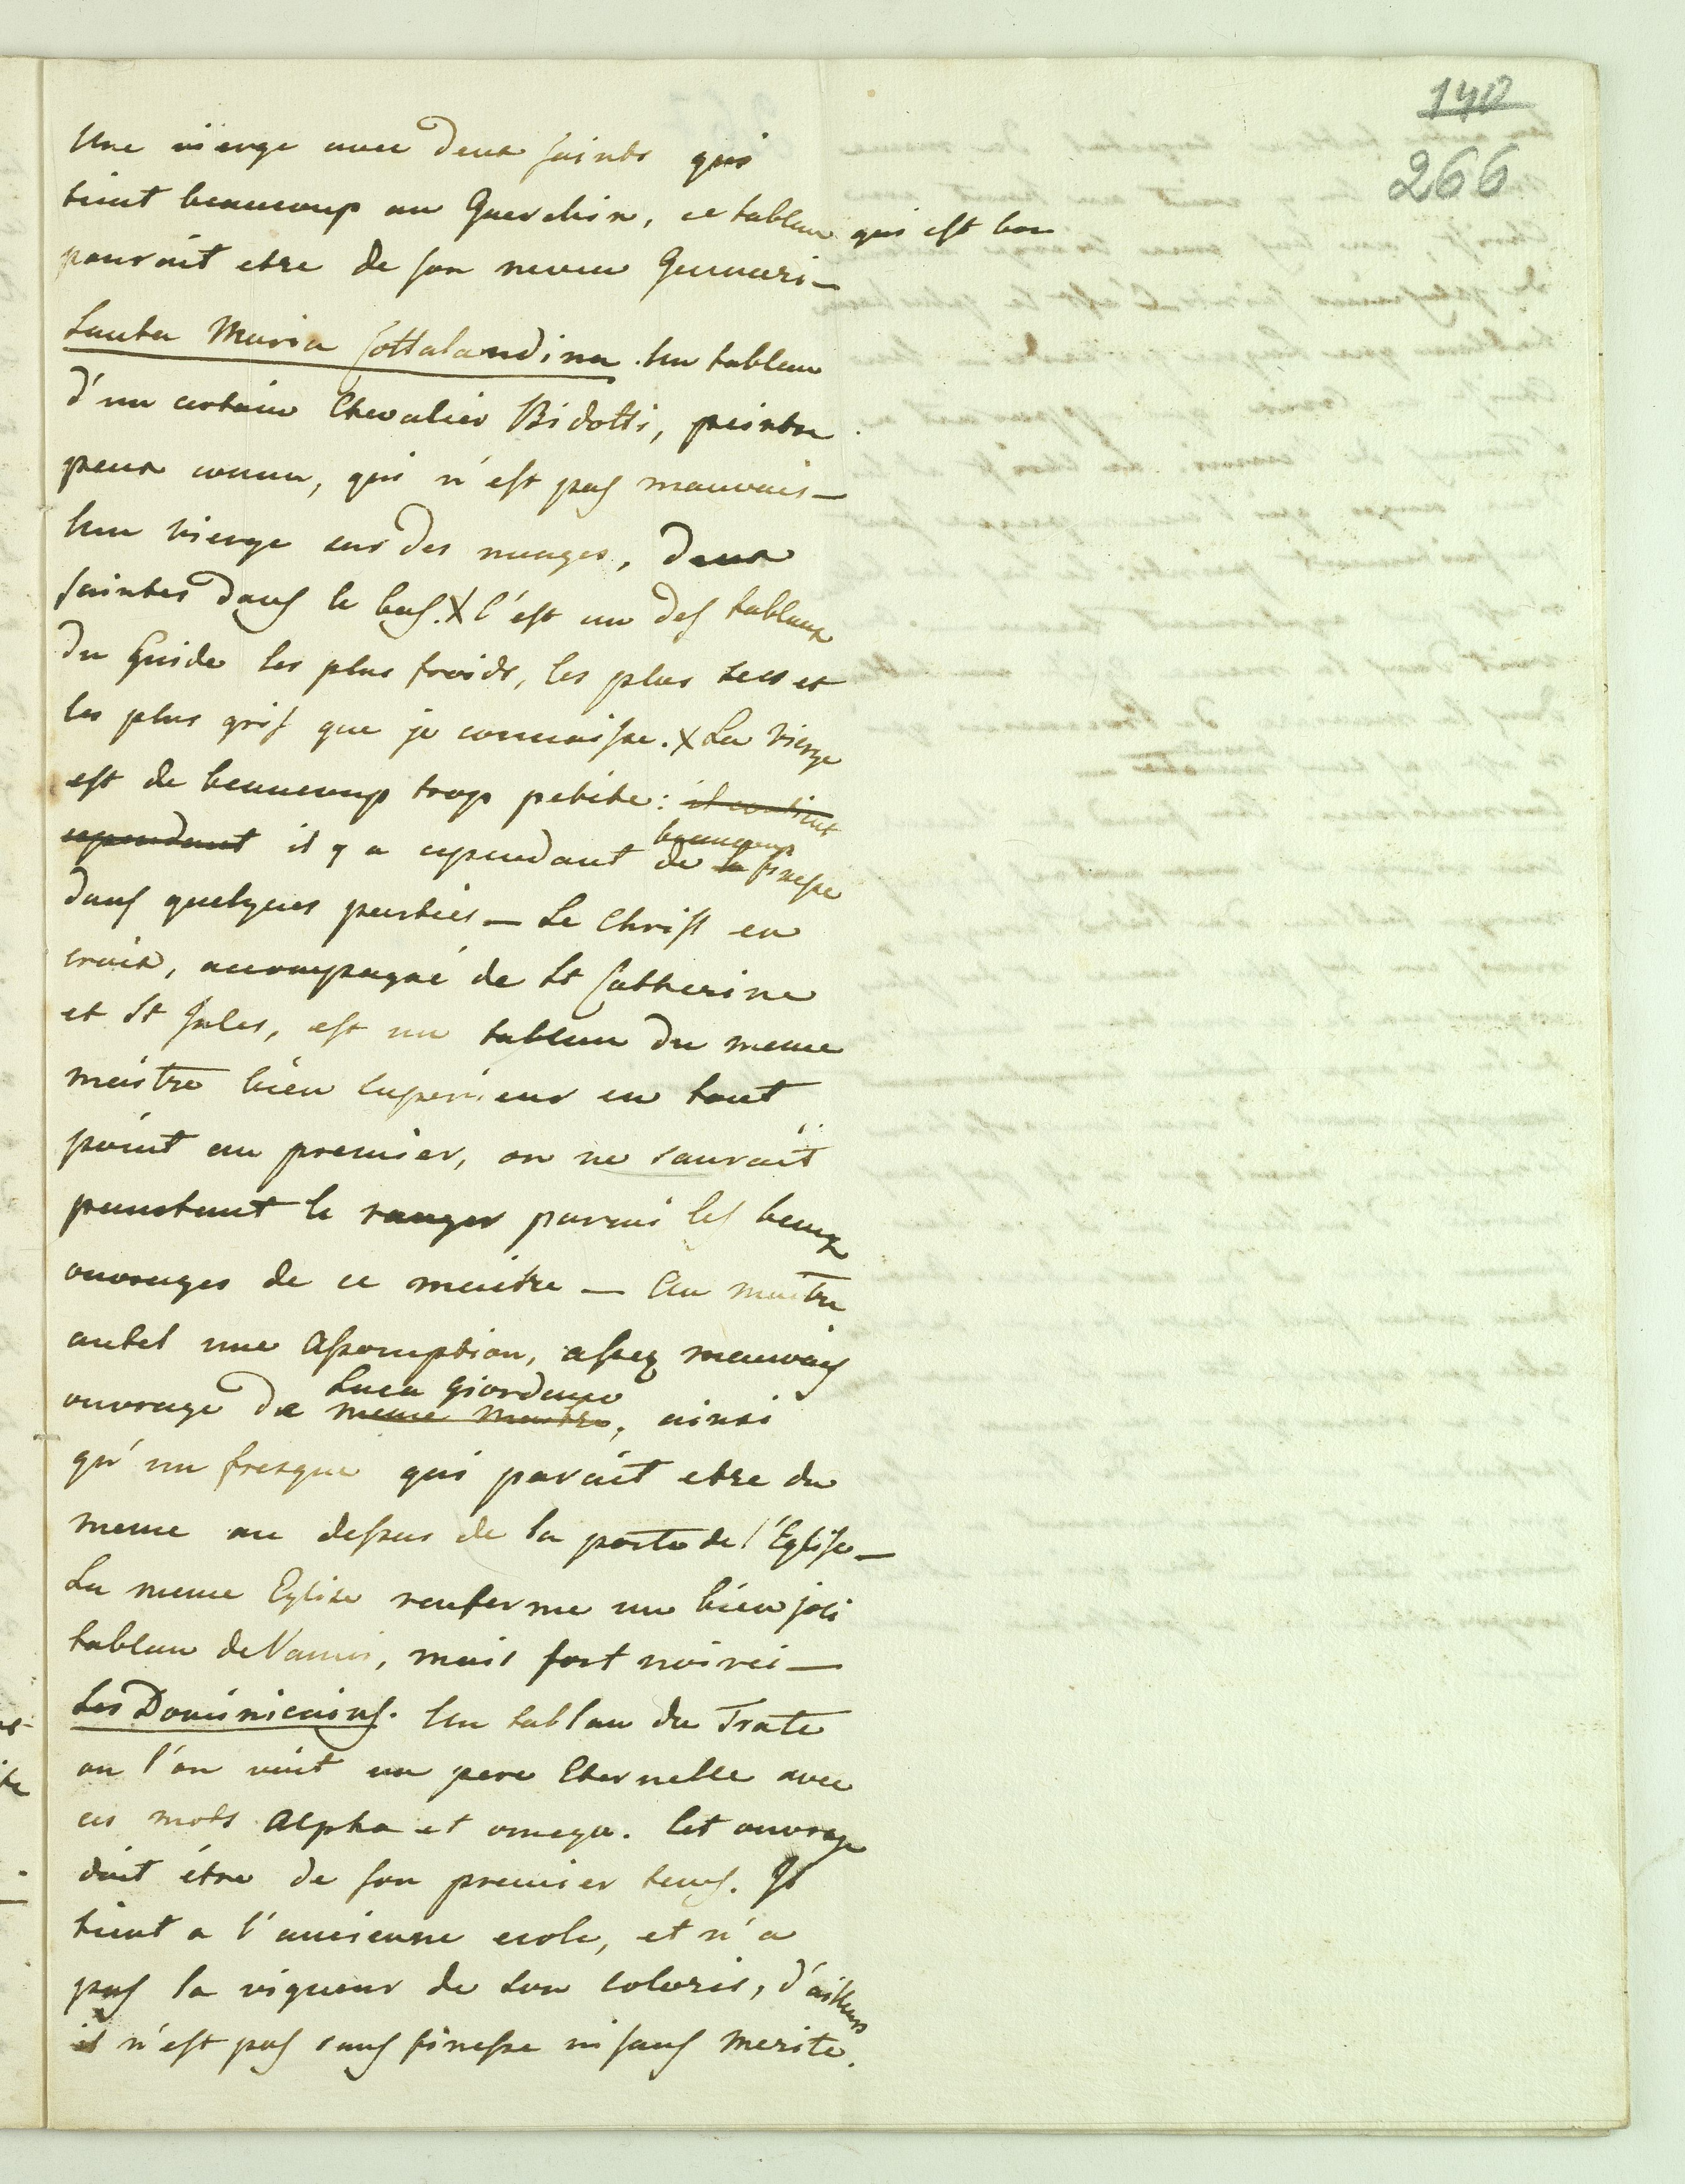 140
266
Une vierge avec deux saints qui
tient beaucoup au Guerchin, ce tableau qui est bon
pourait etre de son neveu Gennari —
Santa Maria Cottalandina. Un tableau
d'un certain Chevalier Bidotti, peintre
peux connu, qui n'est pas mauvais —
Une vierge sur des nuages, deux
saintes dans le bas. X C'est un des tableaux
du Guide les plus froids, les plus secs et
les plus gris que je connaisse. X La vierge
est de beaucoup trop petite: il contient
cependant il y a cependant beaucoup de la finesse
dans quelques parties — Le Christ en
croix, accompagné de St Catherine
et St Jules, est un tableau du meme
maitre bien superieur en tout
point au premier, on ne saurait
pourtant le ranger parmi les beaux
ouvrages de ce maitre — Au maitre
autel une Assomption, assez mauvais
ouvrage de Luca Giordano meme maitre, ainsi
qu'un fresque qui parait etre du
meme au dessus de la porte de l'Eglise —
La meme Eglise renferme un bien joli
tableau de Vanni, mais fort noirci —
Les Dominicains. Un tableau du Frate
ou l'on voit un pere Eternelle avec
ces mots Alpha et omega. Cet ouvrage
doit étre de son premier tems. Il
tient a l'ancienne ecole, et n'a
pas la vigueur de son coloris, d'ailleurs
il n'est pas sans finesse ni sans merite.